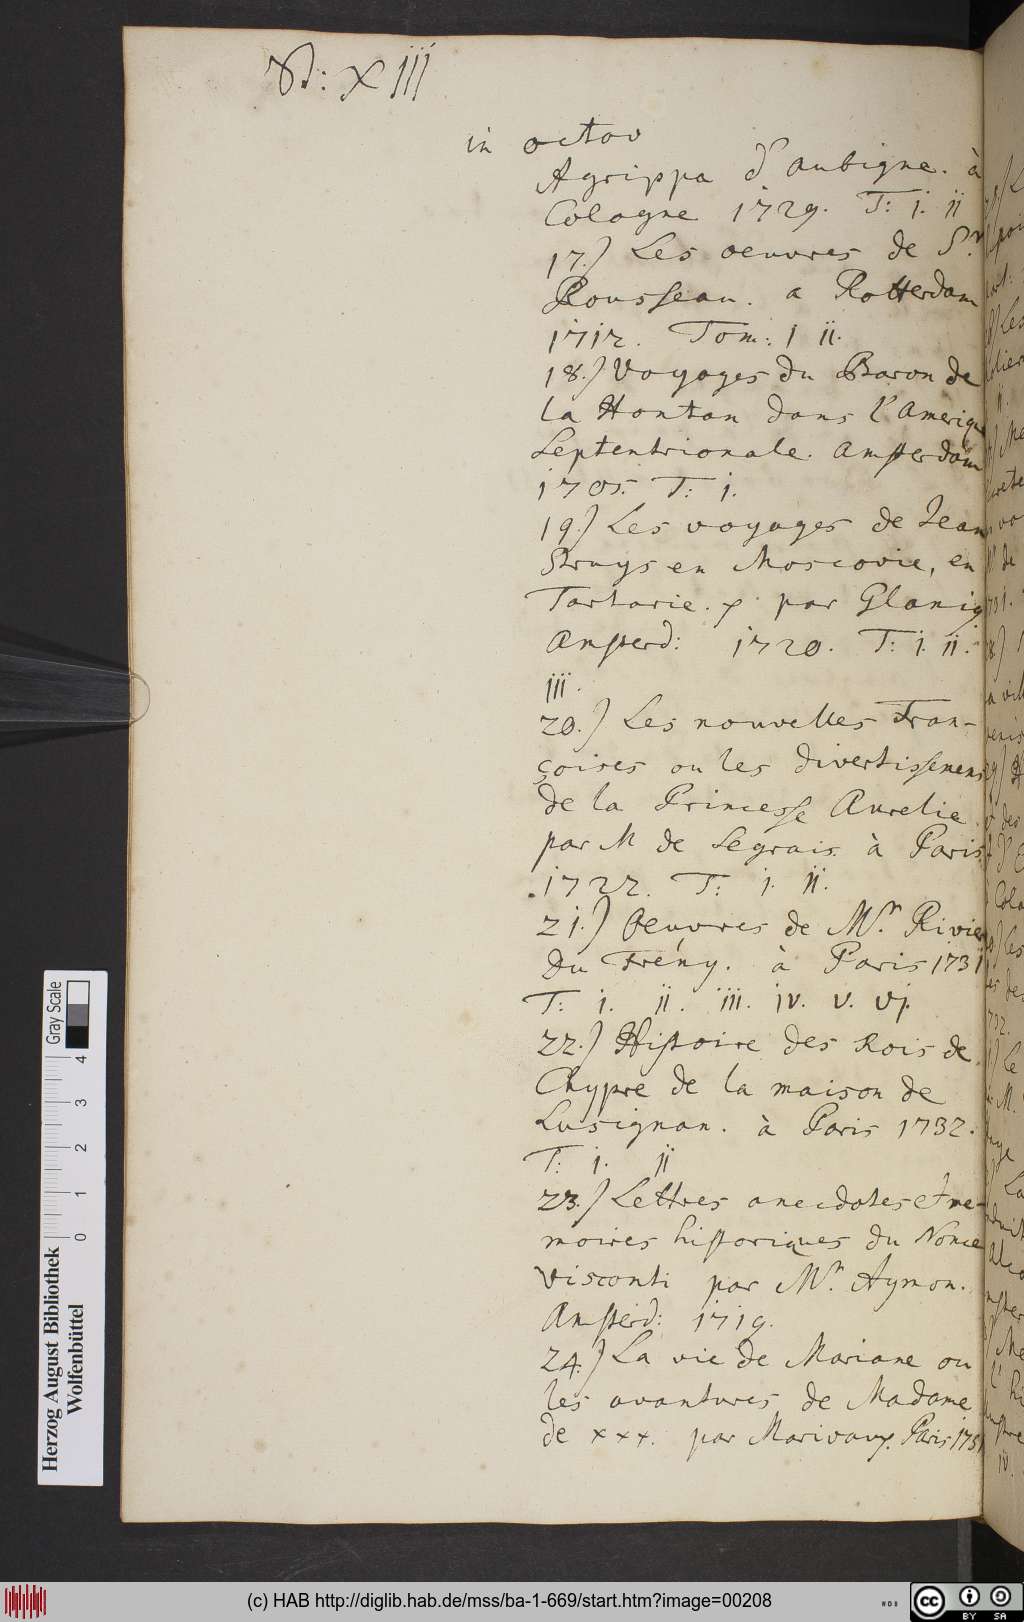 N: XIII
in octav
Agrippa d'aubigne. à
Cologne 1729. T: i. ii
17.) Les oeuvres de Sr.
Rousseau. a Rotterdam
1712. Tom: I ii.
18.) Voyages du Baron de
la Hontan dans l'Amerique
Septentrionale. Amsterdam
1705. T: i.
19.) Les voyages de Jean
Struys en Moscovie, en
Tartarie. par Glanig
Amsterd: 1720. T: i. ii.
iii.
20.) Les nouvelles Fran-
çoises ou les divertissemens
de la Princesse Aurelie.
par M de Segrais. à Paris.
1722. T: i. ii.
21.) Oeuvres de Mr. Rivier
Du Frény. à Paris 1731
T: i. ii. iii. iv. v. vi.
22.) Histoire des Rois de
Chypre de la maison de
Lusignan. à Paris 1732.
T: i. ii
23.) Lettres anecdotes et me-
moires historiques du Nonce
Visconti par Mr. Aymon.
Amsterd: 1719.
24.) La vie de Mariane ou
les avantures de Madame
de xxx. par Marivaux. Paris 1731
Gray Scale
0 1 2 3 4
Herzog August Bibliothek
Wolfenbüttel
(c) HAB http://diglib.hab.de/mss/ba-1-669/start.htm?image=00208
cc BY SA